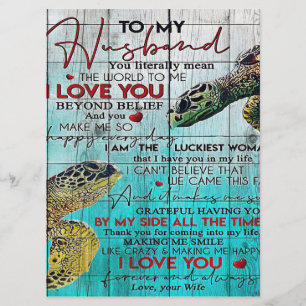 TO MY
Husband
You literally mean
THE WORLD TO ME
I LOVE YOU
BEYOND BELIEF
And you
MAKE ME SO
happy every day
I AM THE LUCKIEST WOMA
that I have you in my life,
I CAN'T BELIEVE THAT
WE CAME THIS FA
And it makes me su
GRATEFUL HAVING YO
BY MY SIDE ALL THE TIME
Thank you for coming into my life,
MAKING ME SMILE
LIKE CRAZY & MAKING ME HAPPY
I LOVE YOU
forever and always
Love, your Wife